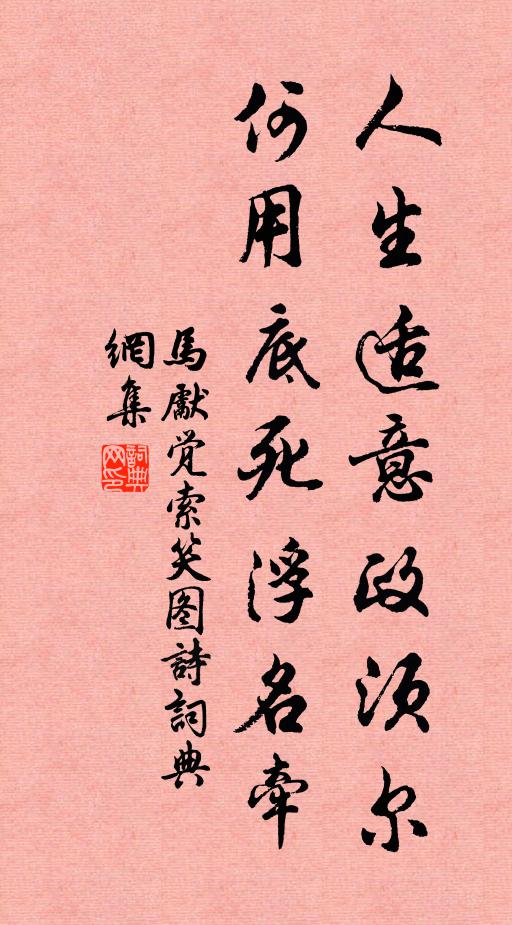 人生适意政须尔
何用底死浮名牵
馬獻觉索笑图詩詞典
網集
詞典网印